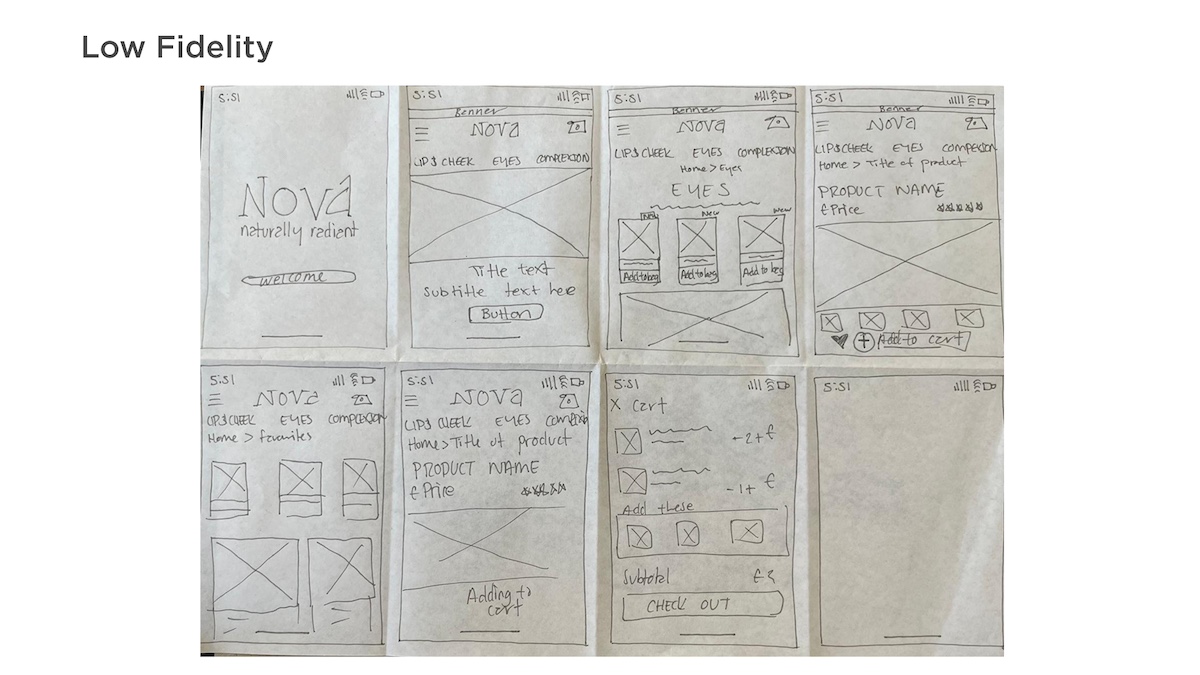 Low Fidelity
5:51
Nova
naturally radient
welcome
5:51
Banner
NOVA
LIPS CHEEK EYES COMPLEXION
Title text
Subtitle text here
Button
5:51
Banner
NOVA
LIPS CHEEK EYES COMPLEXION
Home > Eyes
EYES
New New New
Add to bag Add to bag Add to bag
5:51
Banner
NOVA
LIPS CHEEK EYES COMPEXION
Home > Title of product
PRODUCT NAME
£ Price
+ Add to cart
5:51
NOVA
LIPS CHEEK EYES COMPLEXION
Home > favourites
5:51
NOVA
LIPS CHEEK EYES
Home > Title of product
PRODUCT NAME
£ Price
Adding to
cart
5:51
X Cart
- 2 + £
- 1 + £
Add these
Subtotal
CHECK OUT
5:51